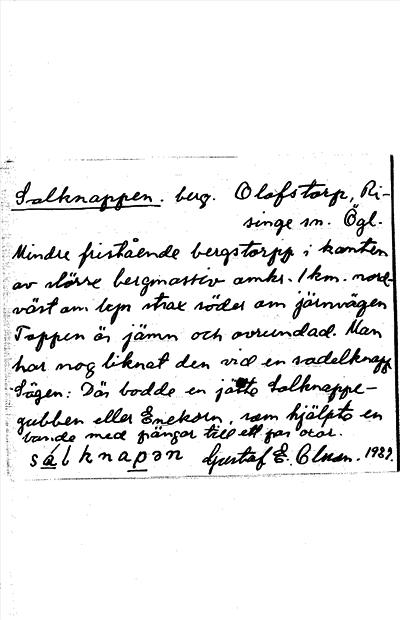 Salknappen. berg. Olofstorp, Ri-
singe sn. Ögl.
Mindre fristående bergstopp i kanten
av större bergmassiv omkr. 1 km. nord-
väst om byn strax söder om järnvägen
Toppen är jämn och avrundad. Man
har nog liknat den vid en sadelknapp
Sägen: Där bodde en jätte Salknappe-
gubben eller Enekorn, som hjälpte en
bonde med pängar till ett par oxar.
salknapən Gustaf E. Olsson. 1929.